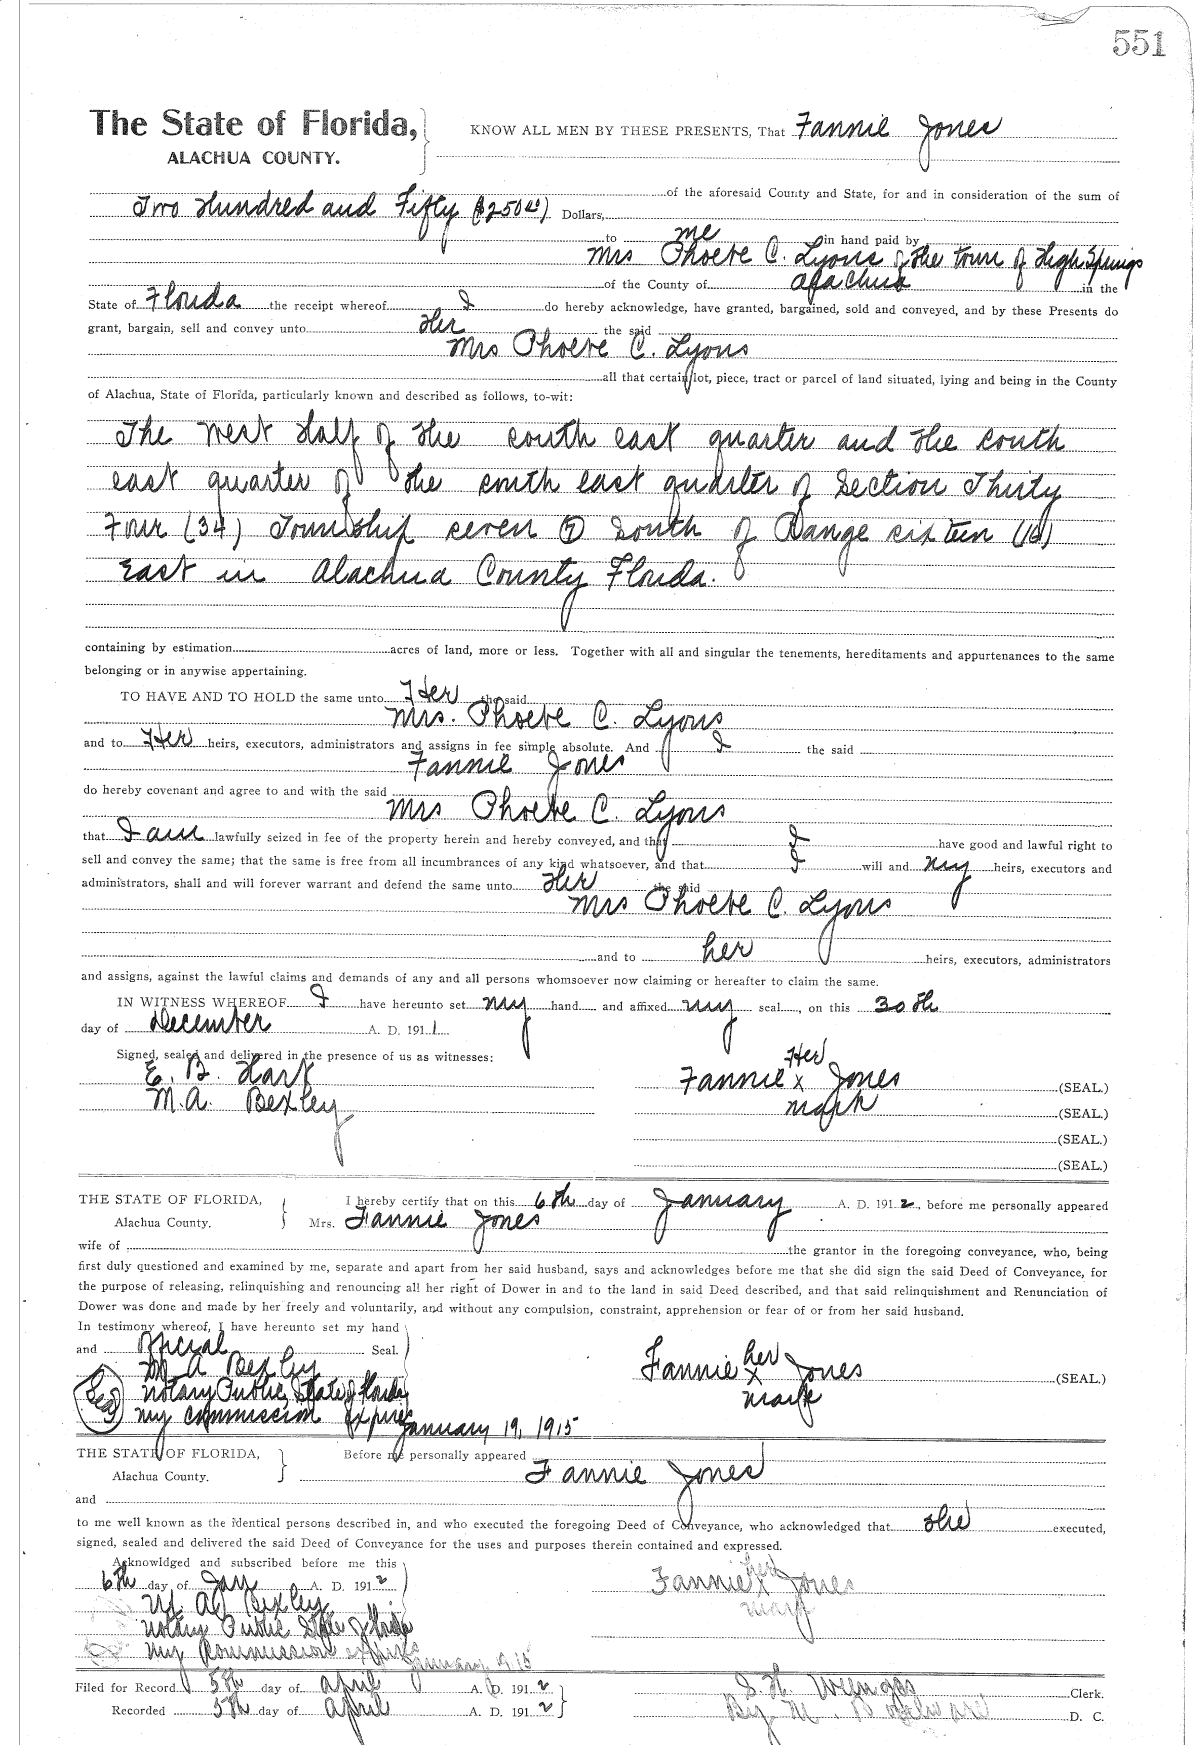 551
The State of Florida,
ALACHUA COUNTY.
KNOW ALL MEN BY THESE PRESENTS, That Fannie Jones
of the aforesaid County and State, for and in consideration of the sum of
Two Hundred and Fifty ($250.00) Dollars,
to me in hand paid by
Mrs Phoebe C. Lyons of the town of High Springs
of the County of Alachua in the
State of Florida the receipt whereof I do hereby acknowledge, have granted, bargained, sold and conveyed, and by these Presents do
grant, bargain, sell and convey unto Her the said
Mrs Phoebe C. Lyons
all that certain lot, piece, tract or parcel of land situated, lying and being in the County
of Alachua, State of Florida, particularly known and described as follows, to-wit:
The West Half of the south east quarter and the south
east quarter of the south east quarter of Section Thirty
Four (34) Township seven (7) South of Range sixteen (16)
East in Alachua County Florida.
containing by estimation acres of land, more or less. Together with all and singular the tenements, hereditaments and appurtenances to the same
belonging or in anywise appertaining.
TO HAVE AND TO HOLD the same unto Her the said
Mrs. Phoebe C. Lyons
and to Her heirs, executors, administrators and assigns in fee simple absolute. And I the said
Fannie Jones
do hereby covenant and agree to and with the said
Mrs Phoebe C. Lyons
that I am lawfully seized in fee of the property herein and hereby conveyed, and that I have good and lawful right to
sell and convey the same; that the same is free from all incumbrances of any kind whatsoever, and that I will and my heirs, executors and
administrators, shall and will forever warrant and defend the same unto Her the said
Mrs Phoebe C. Lyons
and to her heirs, executors, administrators
and assigns, against the lawful claims and demands of any and all persons whomsoever now claiming or hereafter to claim the same.
IN WITNESS WHEREOF I have hereunto set my hand and affixed my seal, on this 30th
day of December A. D. 1911.
Signed, sealed and delivered in the presence of us as witnesses:
E. B. Hart
M. A. Bexley
Her
Fannie x Jones (SEAL.)
mark (SEAL.)
(SEAL.)
(SEAL.)
THE STATE OF FLORIDA,
Alachua County.
I hereby certify that on this 6th day of January A. D. 1912, before me personally appeared
Mrs. Fannie Jones
wife of the grantor in the foregoing conveyance, who, being
first duly questioned and examined by me, separate and apart from her said husband, says and acknowledges before me that she did sign the said Deed of Conveyance, for
the purpose of releasing, relinquishing and renouncing all her right of Dower in and to the land in said Deed described, and that said relinquishment and Renunciation of
Dower was done and made by her freely and voluntarily, and without any compulsion, constraint, apprehension or fear of or from her said husband.
In testimony whereof, I have hereunto set my hand
and Official Seal.
M A Bexley
Notary Public, State of Florida
(Seal) my commission Expires January 19, 1915
her
Fannie x Jones (SEAL.)
mark
THE STATE OF FLORIDA,
Alachua County.
Before me personally appeared Fannie Jones
and
to me well known as the identical persons described in, and who executed the foregoing Deed of Conveyance, who acknowledged that she executed,
signed, sealed and delivered the said Deed of Conveyance for the uses and purposes therein contained and expressed.
Acknowldged and subscribed before me this
6th day of Jan A. D. 1912
M. A. Bexley
Notary Public State of Florida
my Commission expires January
her
Fannie x Jones
mark
Filed for Record 5th day of April A. D. 1912
Recorded 5th day of April A. D. 1912
S. H. Wienges Clerk.
By M. D. C.